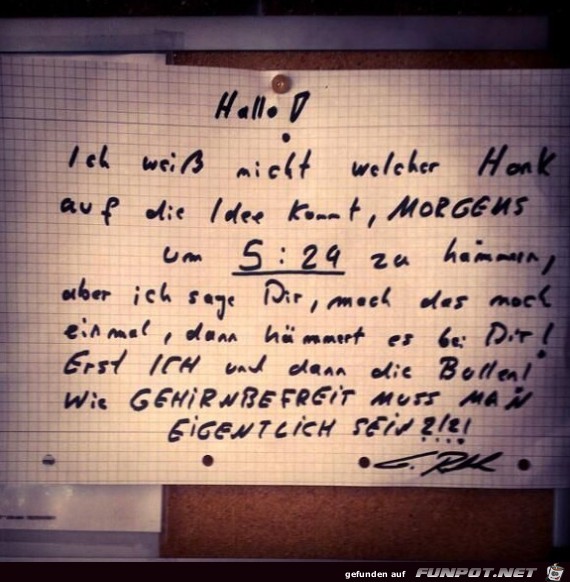 Hallo!
Ich weiß nicht welcher Honk
auf die Idee kommt, MORGENS
um 5:29 zu hämmern,
aber ich sage Dir, mach das noch
einmal, dann hämmert es bei Dir!
Erst ICH und dann die Bullen!
Wie GEHIRNBEFREIT MUSS MAN
EIGENTLICH SEIN ?!?!
gefunden auf FUNPOT.NET